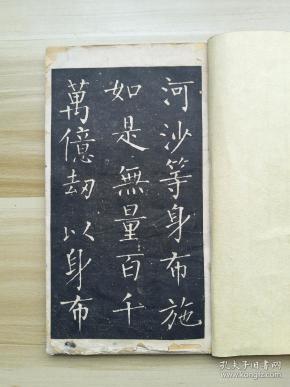 河沙等身布施
如是無量百千
萬億劫以身布
孔夫子旧书网